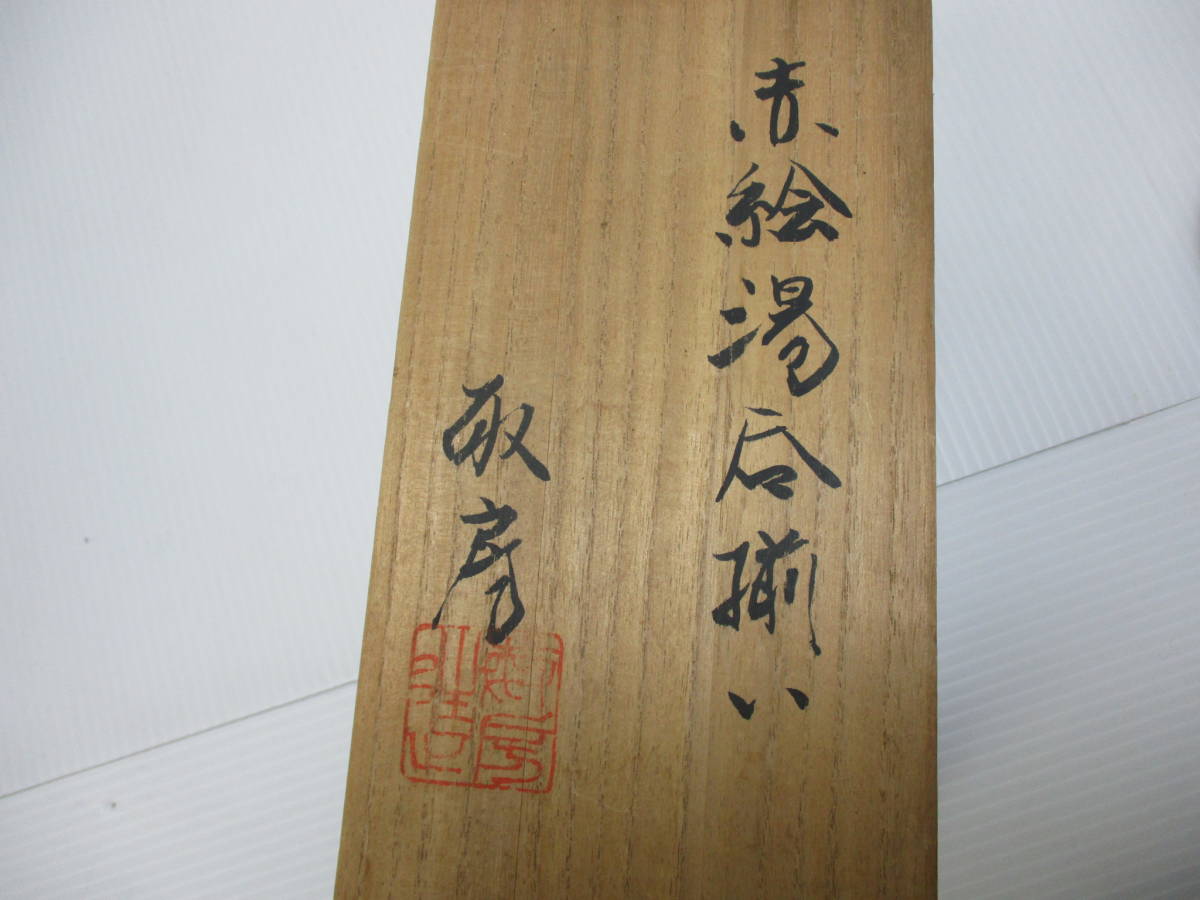 赤絵湯呑揃い
敏房